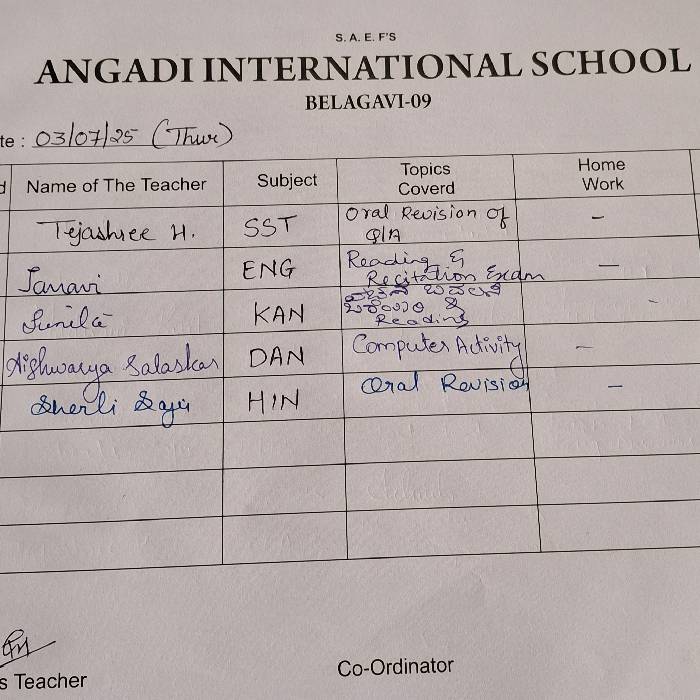 S. A. E. F'S
ANGADI INTERNATIONAL SCHOOL
BELAGAVI-09
te : 03/07/25 (Thur)
d Name of The Teacher Subject Topics Coverd Home Work
Tejashree H. SST Oral Revision of Q/A –
Janavi ENG Reading & Recitation Exam –
Sunila KAN & Reading -
Aishwarya Salaskar DAN Computer Activity –
Sherli Saju HIN Oral Revision –
s Teacher
Co-Ordinator